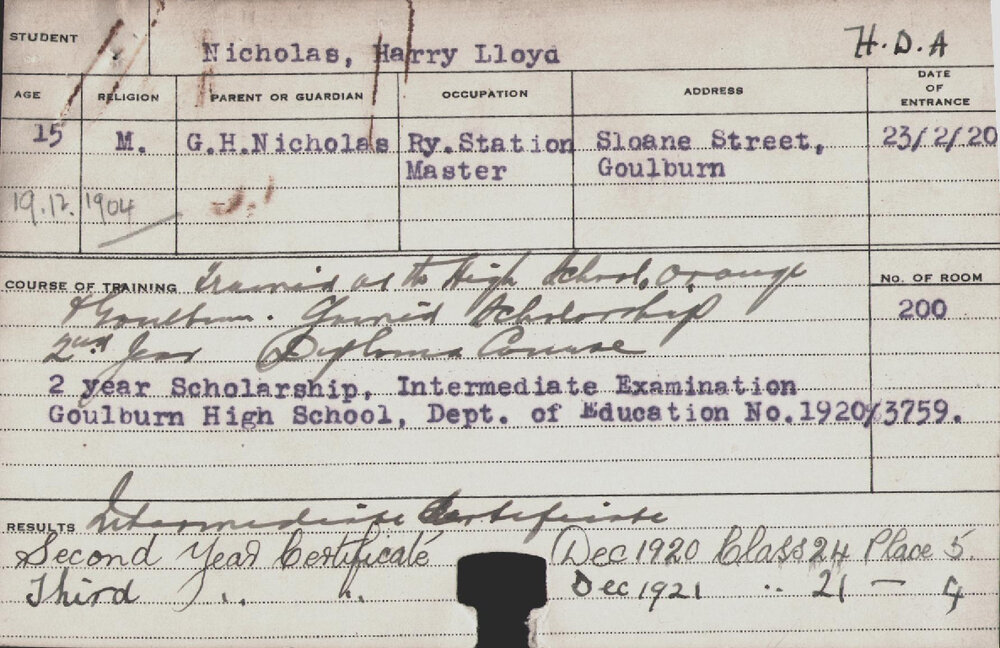 STUDENT Nicholas, Harry Lloyd H.D.A
AGE RELIGION PARENT OR GUARDIAN OCCUPATION ADDRESS DATE OF ENTRANCE
15 M. G.H.Nicholas Ry.Station Sloane Street, 23/2/20
Master Goulburn
19.12.1904
COURSE OF TRAINING Trained at the High School, Orange No. OF ROOM
& Goulburn. Gained Scholarship 200
2nd Year Diploma Course
2 year Scholarship, Intermediate Examination
Goulburn High School, Dept. of Education No.1920/3759.
RESULTS Intermediate Certificate
Second Year Certificate (Dec 1920 Class 24 Place 5.
Third " " Dec 1921 " 21 — 4